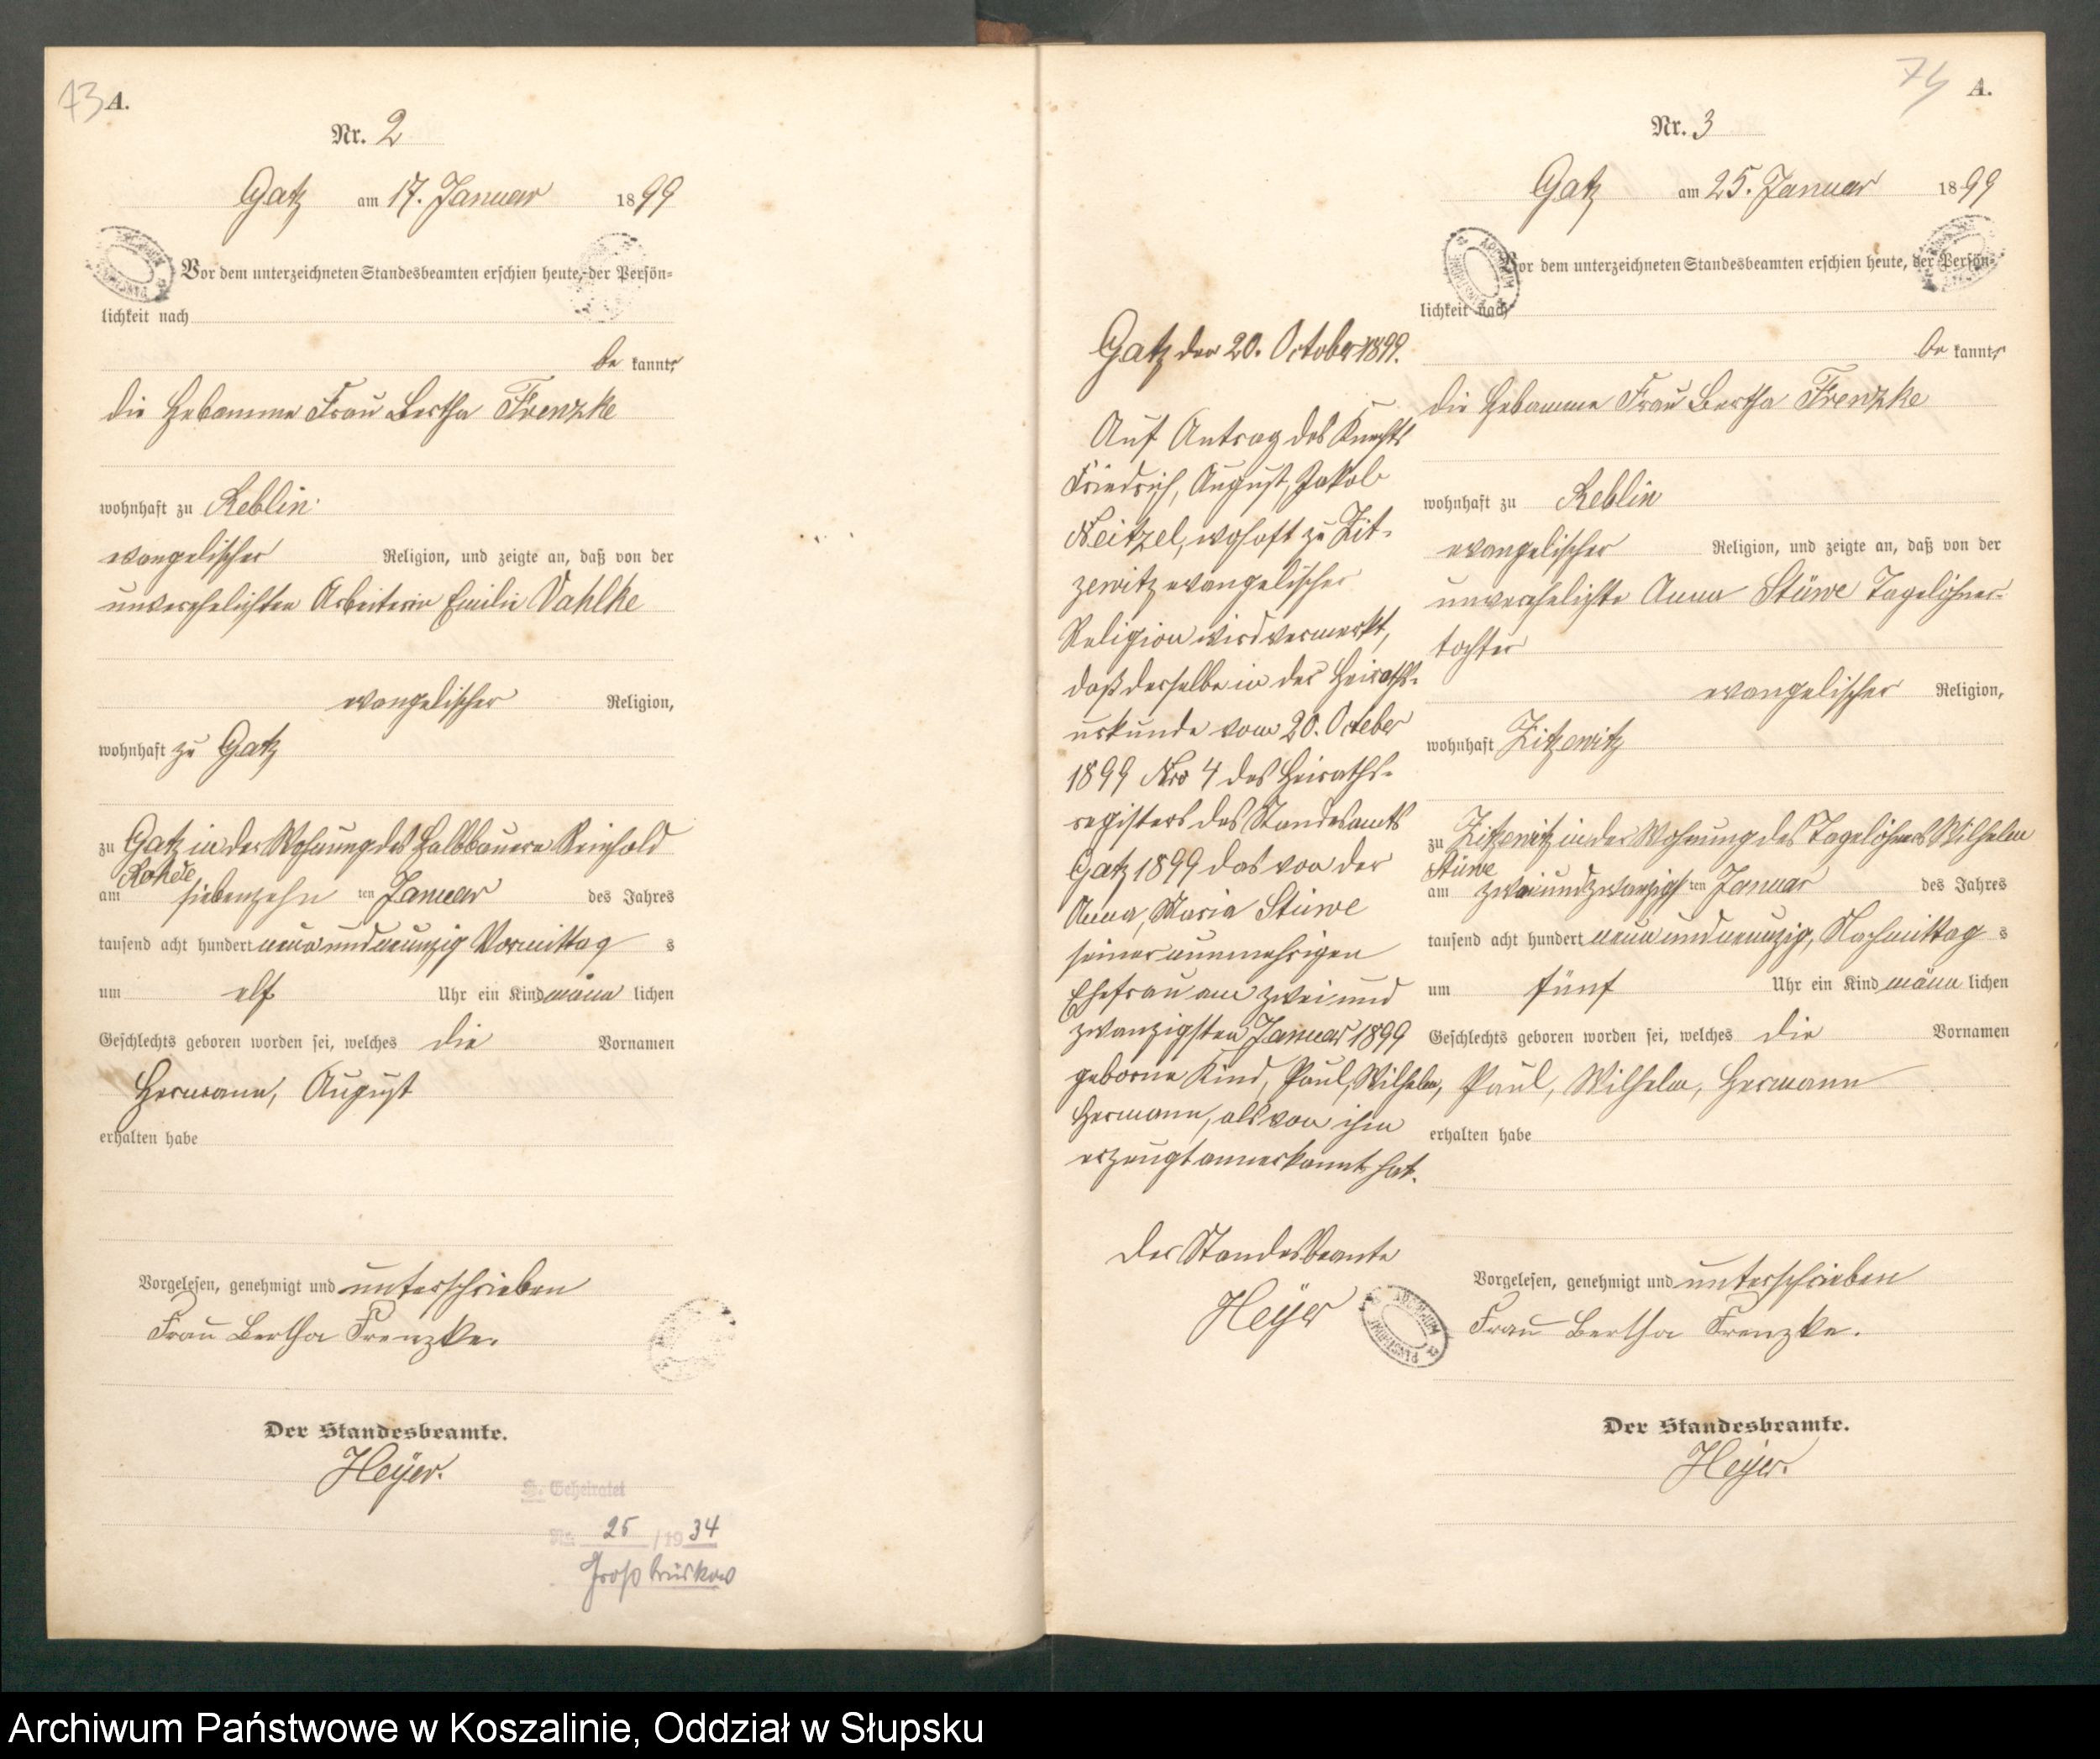 73 A.
Nr. 2
Gatz am 17. Januar 1899
Vor dem unterzeichneten Standesbeamten erschien heute, der Persön=
lichkeit nach
be kannt,
die Hebamme Frau Bertha Frenzke
wohnhaft zu Reblin
evangelischer Religion, und zeigte an, daß von der
unverehelichten Arbeiterin Emilie Vahlke
evangelischer Religion,
wohnhaft zu Gatz
zu Gatz in der Wohnung des Halbbauern Reinhold
Rohde
am siebenzehn ten Januar des Jahres
tausend acht hundert neun und neunzig Vormittag s
um elf Uhr ein Kind männ lichen
Geschlechts geboren worden sei, welches die Vornamen
Hermann, August
erhalten habe
Vorgelesen, genehmigt und unterschrieben
Frau Bertha Frenzke.
Der Standesbeamte.
Heyer.
Geheiratet
Nr. 25 / 1934
Groß Brüskow
74 A.
Nr. 3
Gatz am 25. Januar 1899
Vor dem unterzeichneten Standesbeamten erschien heute, der Persön=
lichkeit nach
be kannt,
die Hebamme Frau Bertha Frenzke
wohnhaft zu Reblin
evangelischer Religion, und zeigte an, daß von der
unverehelichte Anna Stüwe Tagelöhner-
tochter
evangelischer Religion,
wohnhaft Zitzewitz
zu Zitzewitz in der Wohnung des Tagelöhners Wilhelm
Stüwe
am zweiundzwanzigst ten Januar des Jahres
tausend acht hundert neun und neunzig, Nachmittag s
um fünf Uhr ein Kind männ lichen
Geschlechts geboren worden sei, welches die Vornamen
Paul, Wilhelm, Hermann
erhalten habe
Vorgelesen, genehmigt und unterschrieben
Frau Bertha Frenzke.
Der Standesbeamte.
Heyer.
Gatz den 20. October 1899.
Auf Antrag des Knechts
Friedrich, August, Jakob
Neitzel, wohaft zu Zit-
zewitz evangelischer
Religion wird vermerkt,
daß derselbe in der Heiraths-
urkunde vom 20. October
1899 Nro 4 des Heiraths-
registers des Standesamts
Gatz 1899 das von der
Anna, Maria Stüwe
seiner nunmehrigen
Ehefrau am zwei und
zwanzigsten Januar 1899
geborne Kind, Paul, Wilhelm,
Hermann, als von ihm
erzeugt annerkannt hat.
Der Standesbeamte
Heyer
Archiwum Państwowe w Koszalinie, Oddział w Słupsku